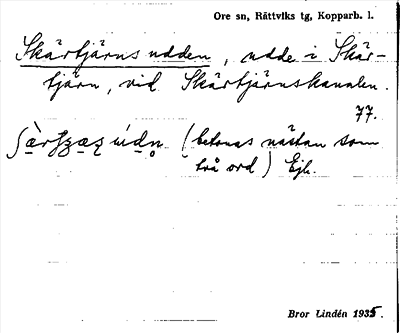 Ore sn, Rättviks tg, Kopparb. l.
Skärtjärnsudden, udde i Skär-
tjärn, vid Skärtjärnskanalen.
77.
(betonas nästan som
två ord) Ejh.
Bror Lindén 1935.